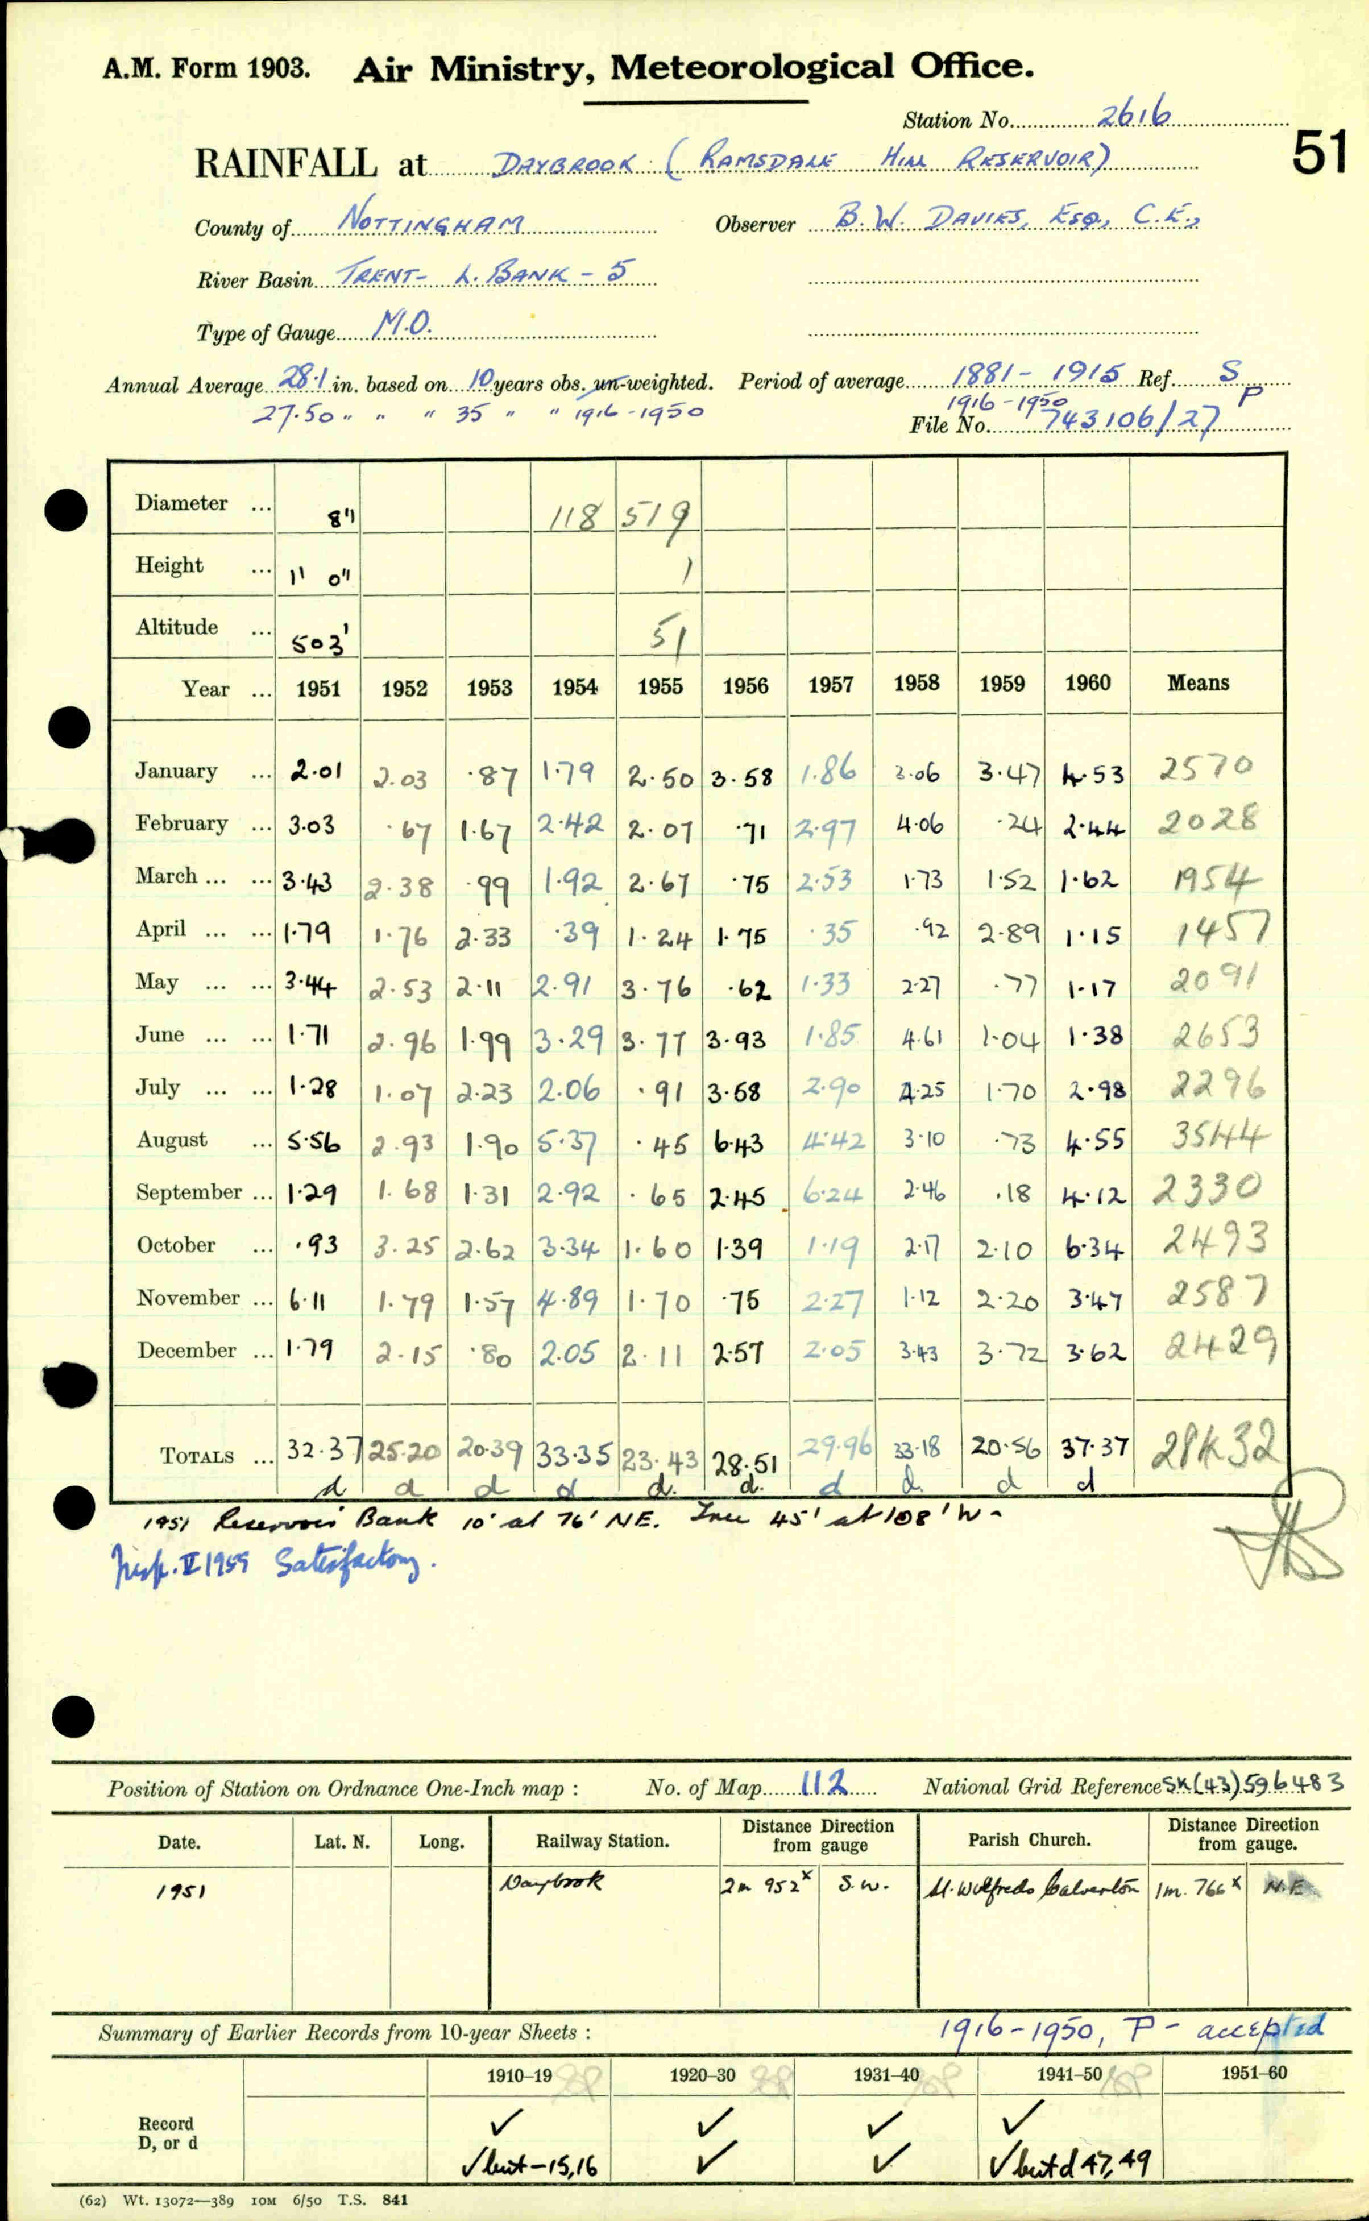 A.M. Form 1903. Air Ministry, Meteorological Office.
Station No. 2616
51
RAINFALL at DAYBROOK (RAMSDALE HILL RESERVOIR)
County of NOTTINGHAM Observer B.W. DAVIES, ESQ., C.E.,
River Basin TRENT - L. BANK - 5
Type of Gauge M.O.
Annual Average 28.1 in. based on 10 years obs. un-weighted. Period of average 1881 - 1915 Ref. S P
27.50 " " " 35 " " 1916-1950 1916-1950
File No. 743106/27
Diameter ... 8" 118 519
Height ... 1' 0" 1
Altitude ... 503' 51
Year ... 1951 1952 1953 1954 1955 1956 1957 1958 1959 1960 Means
January ... 2.01 2.03 .87 1.79 2.50 3.58 1.86 2.06 3.47 4.53 2570
February ... 3.03 .67 1.67 2.42 2.07 .71 2.97 4.06 .24 2.44 2028
March ... ... 3.43 2.38 .99 1.92 2.67 .75 2.53 1.73 1.52 1.62 1954
April ... ... 1.79 1.76 2.33 .39 1.24 1.75 .35 .92 2.89 1.15 1457
May ... ... 3.44 2.53 2.11 2.91 3.76 .62 1.33 2.27 .77 1.17 2091
June ... ... 1.71 2.96 1.99 3.29 3.77 3.93 1.85 4.61 1.04 1.38 2653
July ... ... 1.28 1.07 2.23 2.06 .91 3.58 2.90 4.25 1.70 2.98 2296
August ... 5.56 2.93 1.90 5.37 .45 6.43 4.42 3.10 .73 4.55 3544
September ... 1.29 1.68 1.31 2.92 .65 2.45 6.24 2.46 .18 4.12 2330
October ... .93 3.25 2.62 3.34 1.60 1.39 1.19 2.17 2.10 6.34 2493
November ... 6.11 1.79 1.57 4.89 1.70 .75 2.27 1.12 2.20 3.47 2587
December ... 1.79 2.15 .80 2.05 2.11 2.57 2.05 3.43 3.72 3.62 2429
TOTALS ... 32.37 25.20 20.39 33.35 23.43 28.51 29.96 33.18 20.56 37.37 28432
d d d d d. d. d d. d d
1951 Reservoir Bank 10' at 76' NE. Tree 45' at 108' W.
Insp. V 1959 Satisfactory.
Position of Station on Ordnance One-Inch map : No. of Map 112 National Grid Reference SK(43)596483
Date. Lat. N. Long. Railway Station. Distance Direction from gauge Parish Church. Distance Direction from gauge.
1951 Daybrook 2m 952x S.W. St. Wilfreds Calverton 1m. 766x N.E
Summary of Earlier Records from 10-year Sheets : 1916-1950, P - accepted
1910-19 1920-30 1931-40 1941-50 1951-60
Record ✓ ✓ ✓ ✓
D, or d ✓ but - 15,16 ✓ ✓ ✓ but d 47, 49
(62) Wt. 13072—389 10M 6/50 T.S. 841